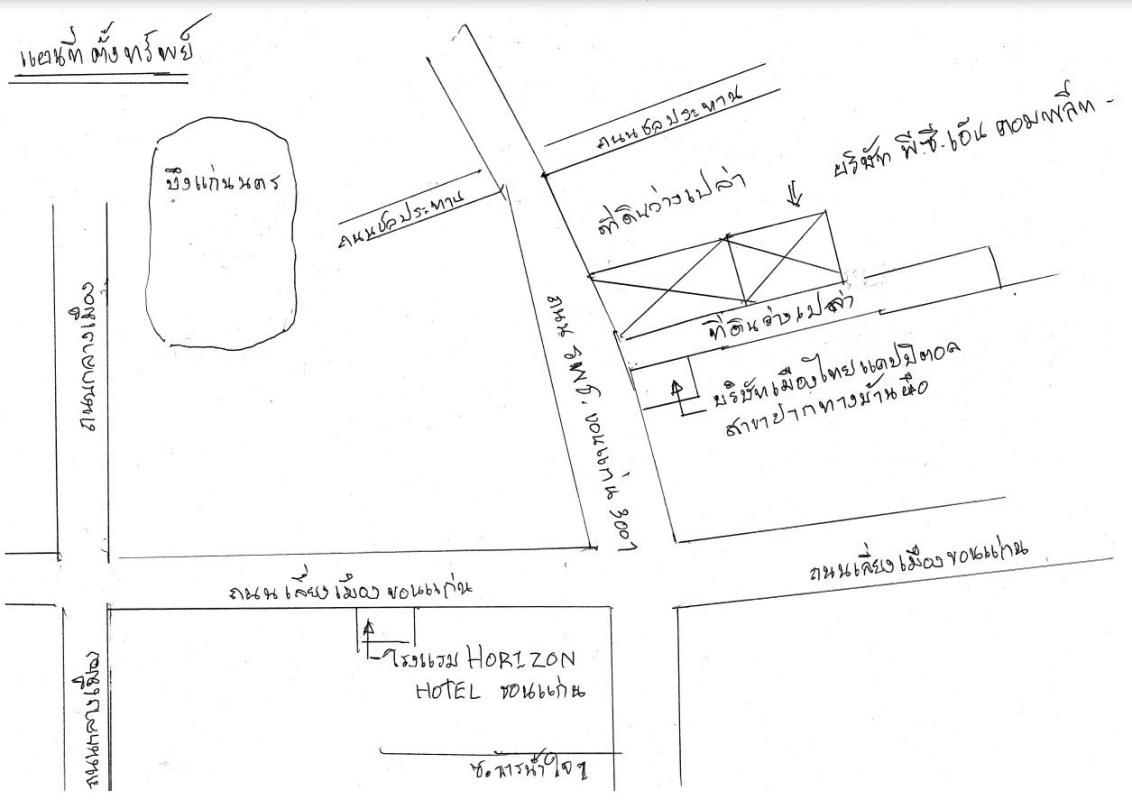 แผนที่ตั้งทรัพย์
บึงแก่นนคร
ถนนชลประทาน
ถนนชลประทาน
ที่ดินว่างเปล่า
บริษัท พี.ซี.เอ็น คอมพลีท
ที่ดินว่างเปล่า
บริษัทเมืองไทยแคปปิตอล
สาขาปากทางบ้าน
ถนน รพช. ขอนแก่น 3007
ถนนกลางเมือง
ถนนเลี่ยงเมืองขอนแก่น
ถนนเลี่ยงเมืองขอนแก่น
โรงแรม HORIZON
HOTEL ขอนแก่น
ถนนกลางเมือง